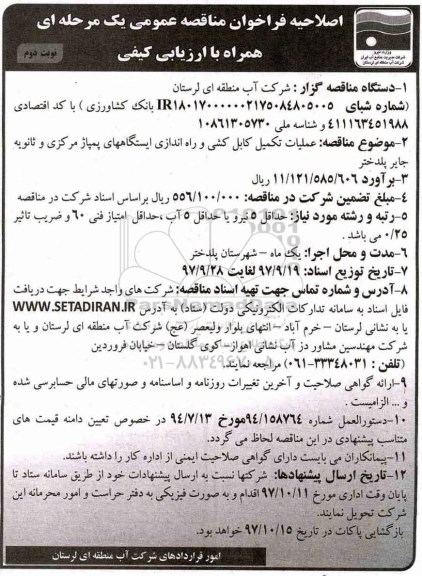 اصلاحیه فراخوان مناقصه عمومی یک مرحله ای
همراه با ارزیابی کیفی
نوبت دوم
وزارت نیرو
شرکت مدیریت منابع آب ایران
شرکت آب منطقه ای لرستان
۱-دستگاه مناقصه گزار : شرکت آب منطقه ای لرستان
(شماره شبای IR۱۸۰۱۷۰۰۰۰۰۰۰۲۱۷۵۰۸۴۸۰۵۰۰۵ بانک کشاورزی ) با کد اقتصادی
۴۱۱۱۶۳۴۵۱۹۸۸ و شناسه ملی ۱۰۸۶۱۳۰۵۷۳۰
۲-موضوع مناقصه: عملیات تکمیل کابل کشی و راه اندازی ایستگاههای پمپاژ مرکزی و ثانویه
جایر پلدختر
۳-برآورد ۱۱/۱۲۱/۵۸۵/۶۰۶ ریال
۴-مبلغ تضمین شرکت در مناقصه: ۵۵۶/۱۰۰/۰۰۰ ریال براساس اسناد شرکت در مناقصه
۵-رتبه و رشته مورد نیاز: حداقل ۵ نیرو یا حداقل ۵ آب ،حداقل امتیاز فنی ۶۰ و ضریب تاثیر
۰/۲۵ می باشد .
۶-مدت و محل اجرا: یک ماه – شهرستان پلدختر
۷-تاریخ توزیع اسناد: ۹۷/۹/۱۹ لغایت ۹۷/۹/۲۸
۸-آدرس و شماره تماس جهت تهیه اسناد مناقصه: شرکت های واجد شرایط جهت دریافت
فایل اسناد به سامانه تدارکات الکترونیکی دولت (ستاد) به آدرس WWW.SETADIRAN.IR
یا به نشانی لرستان – خرم آباد – انتهای بلوار ولیعصر (عج) شرکت آب منطقه ای لرستان و یا به
شرکت مهندسین مشاور دز آب نشانی اهواز- کوی گلستان – خیابان فروردین
(تلفن : ۳۳۳۴۸۰۳۱-۰۶۱) مراجعه نمایند.
۹-ارائه گواهی صلاحیت و آخرین تغییرات روزنامه و اساسنامه و صورتهای مالی حسابرسی شده
و ... الزامیست .
۱۰-دستورالعمل شماره ۹۴/۱۵۸۷۶۴مورخ ۹۴/۷/۱۳ در خصوص تعیین دامنه قیمت های
متناسب پیشنهادی در این مناقصه لحاظ می گردد.
۱۱-پیمانکاران می بایست دارای گواهی صلاحیت ایمنی از اداره کار را داشته باشند.
۱۲-تاریخ ارسال پیشنهادها: شرکتها نسبت به ارسال پیشنهادات خود از طریق سامانه ستاد تا
پایان وقت اداری مورخ ۹۷/۱۰/۱۱ اقدام و به صورت فیزیکی به دفتر حراست و امور محرمانه این
شرکت تحویل نمایند.
بازگشایی پاکات در تاریخ ۹۷/۱۰/۱۵ خواهد بود.
امور قراردادهای شرکت آب منطقه ای لرستان